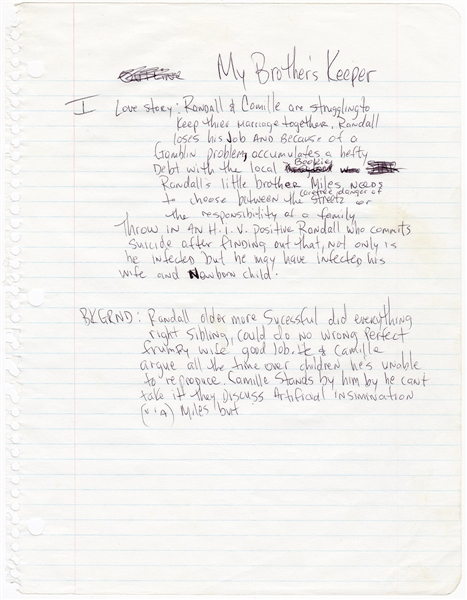 My Brother's Keeper
I Love story: Randall & Camille are struggling to
keep thier marriage together, Randall
loses his Job AND Because of a
Gamblin problem, accumulates a hefty
Debt with the local Bookie
Randall's little brother Miles needs
to choose between the carefree danger of Streetz or
the responsibility of a family
Throw in an H.I.V. positive Randall who commits
suicide after finding out that, not only is
he infected but he may have infected his
wife and Newborn child.
BKGRND: Randall older more Sucessful did everything
right sibling, could do no wrong perfect
wife good Job. He & Camille
argue all the time over children he's unable
to reproduce. Camille stands by him by he cant
take it they Discuss Artificial insimination
(via) Miles but